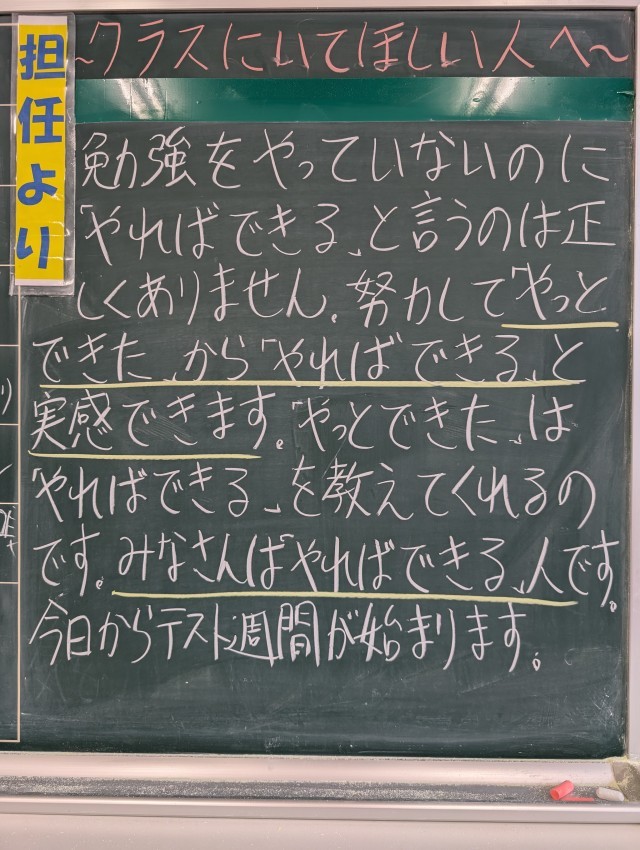 担任より
~クラスにいてほしい人へ~
勉強をやっていないのに
「やればできる」と言うのは正
しくありません。努力して「やっと
できた」から「やればできる」と
実感できます。「やっとできた」は
「やればできる」を教えてくれるの
です。みなさんは「やればできる」人です。
今日からテスト週間が始まります。